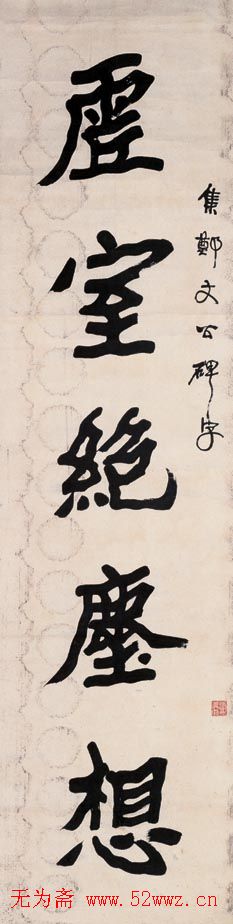 集鄭文公碑字
虛室絕塵想
无为斋 www.52wwz.cn